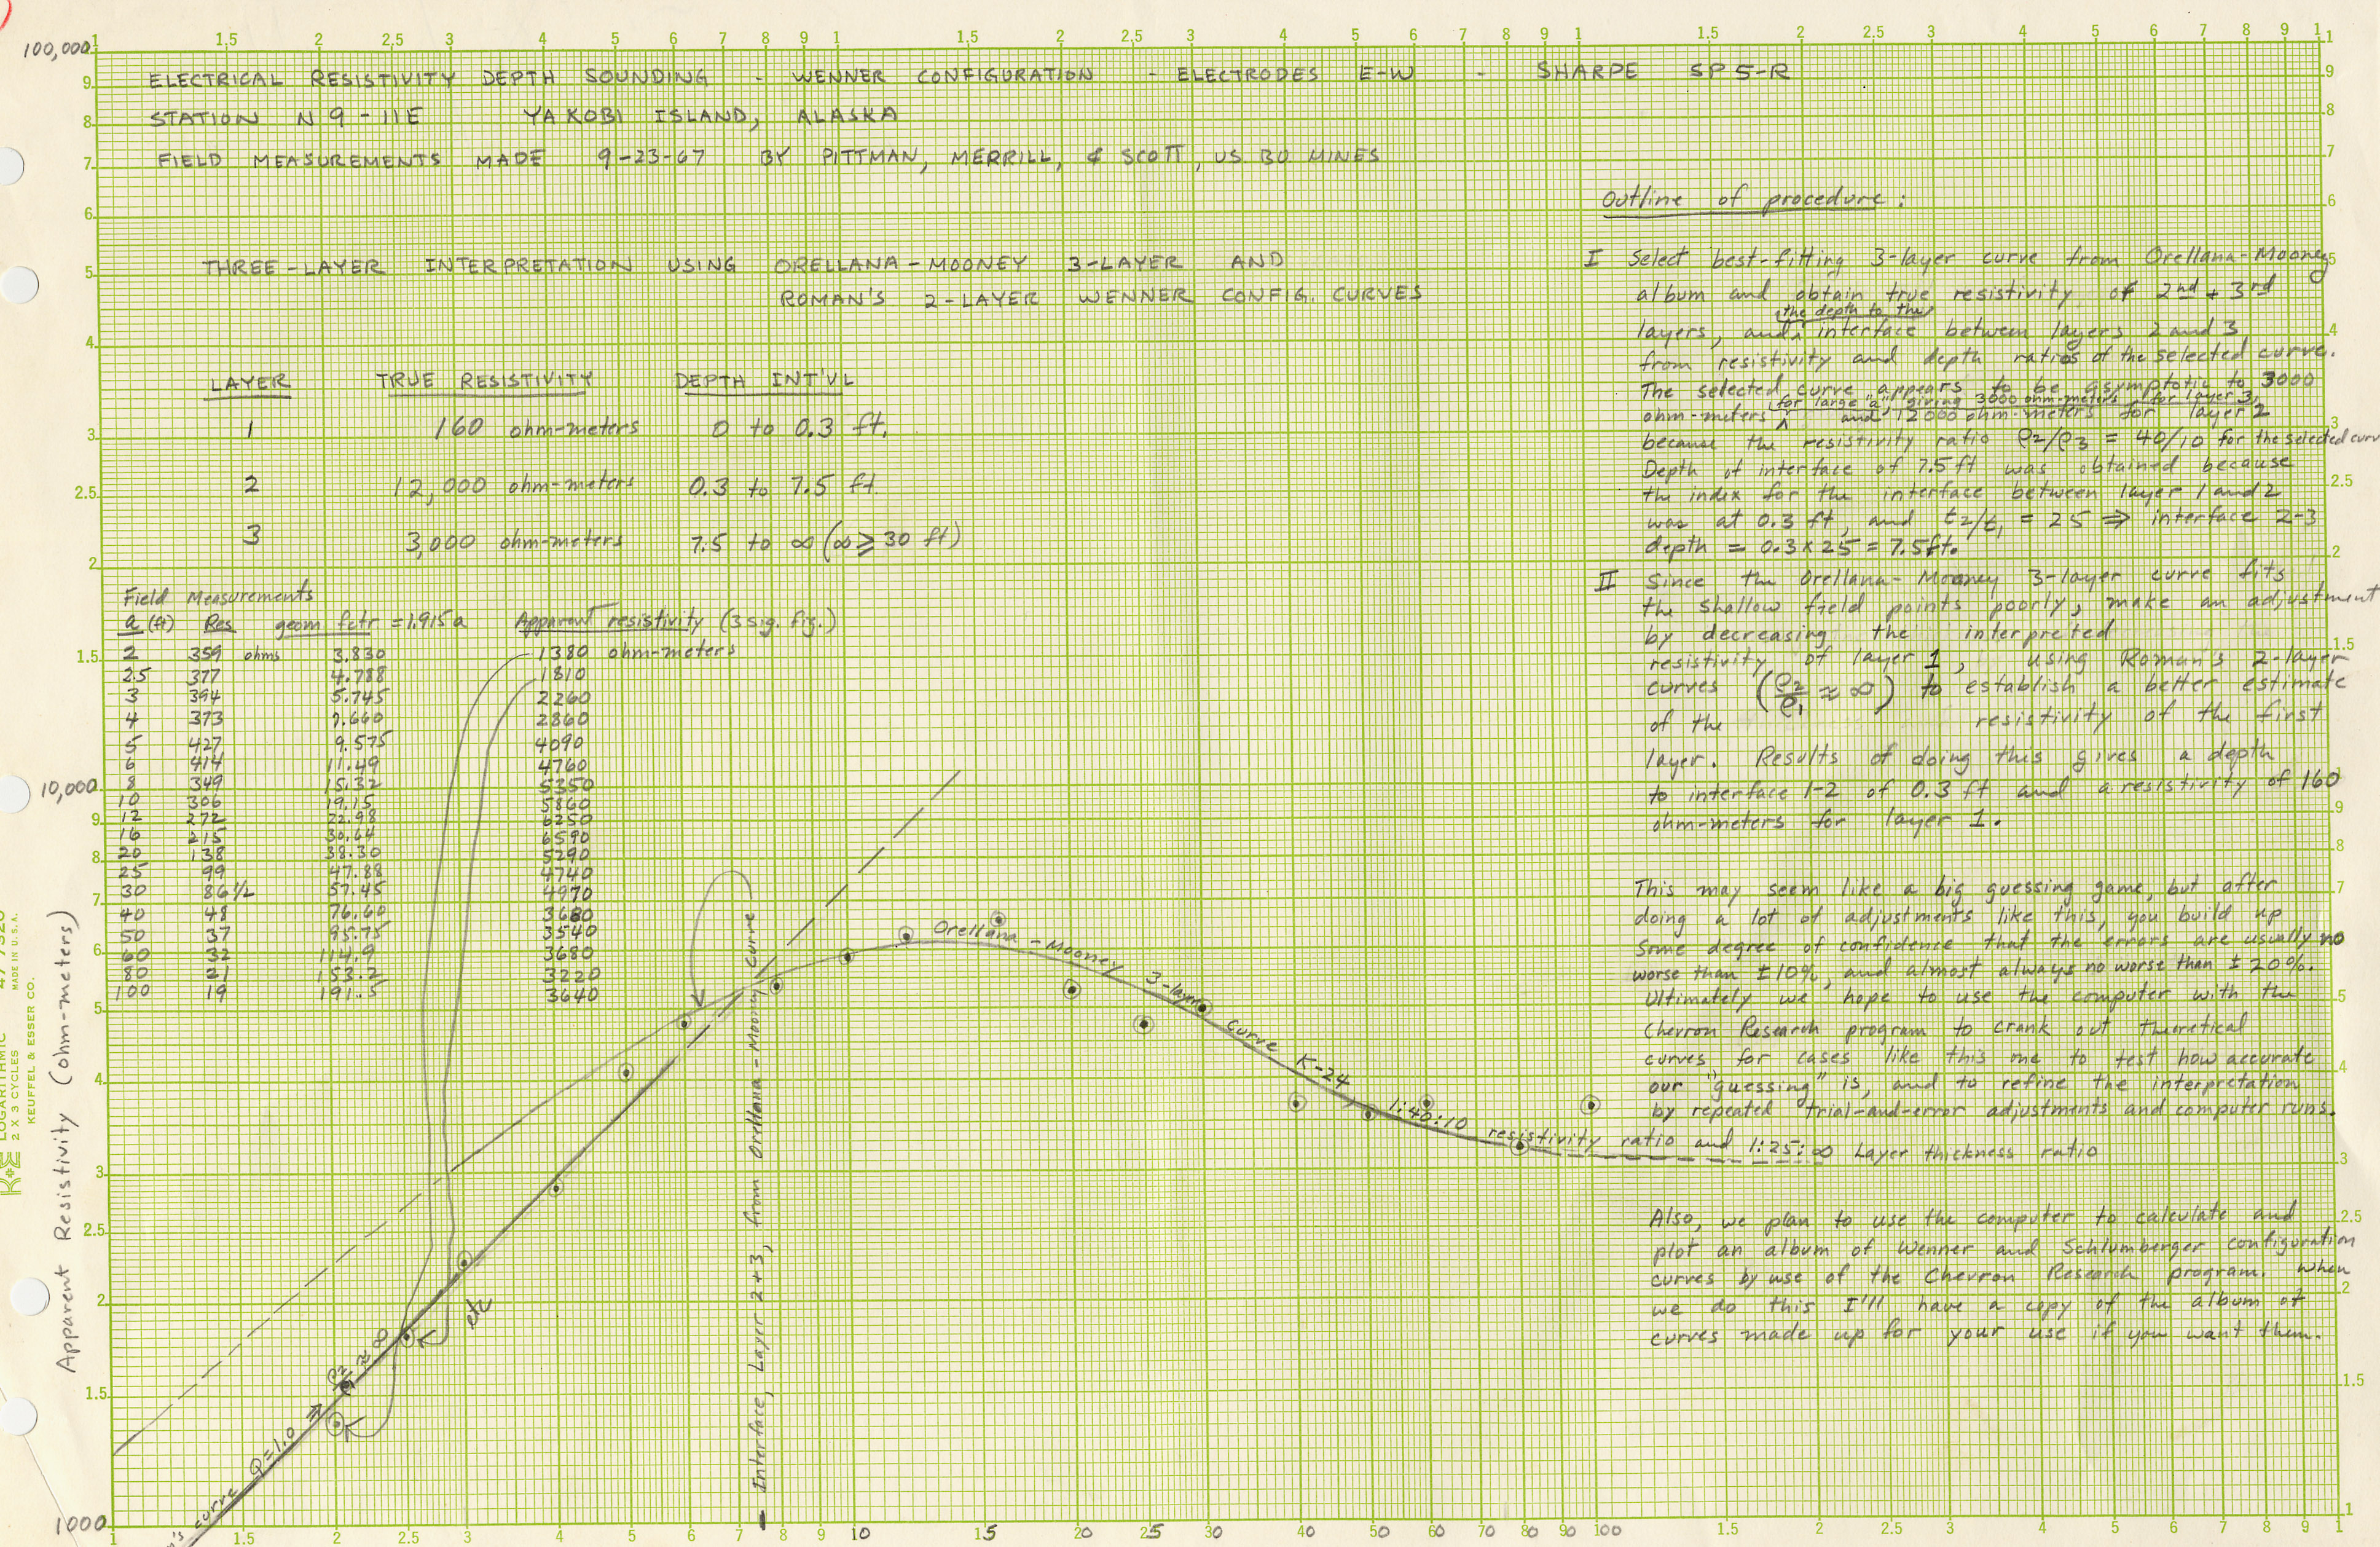 100,000
1 1.5 2 2.5 3 4 5 6 7 8 9 1 1.5 2 2.5 3 4 5 6 7 8 9 1 1.5 2 2.5 3 4 5 6 7 8 9 1
ELECTRICAL RESISTIVITY DEPTH SOUNDING - WENNER CONFIGURATION - ELECTRODES E-W - SHARPE SP 5-R
STATION N 9 - 11E YAKOBI ISLAND, ALASKA
FIELD MEASUREMENTS MADE 9-23-67 BY PITTMAN, MERRILL, & SCOTT, US. BU. MINES
THREE-LAYER INTERPRETATION USING ORELLANA-MOONEY 3-LAYER AND
ROMAN'S 2-LAYER WENNER CONFIG. CURVES
LAYER TRUE RESISTIVITY DEPTH INT'VL
1 160 ohm-meters 0 to 0.3 ft.
2 12,000 ohm-meters 0.3 to 7.5 ft.
3 3,000 ohm-meters 7.5 to ∞ (∞ ⩾ 30 ft)
Field Measurements
a (ft) Res geom fctr = 1.915 a Apparent resistivity (3 sig. fig.)
2 359 ohms 3.830 1380 ohm-meters
2.5 377 4.788 1810
3 394 5.745 2260
4 373 7.660 2860
5 427 9.575 4090
6 414 11.49 4760
8 349 15.32 5350
10 306 19.15 5860
12 272 22.98 6250
16 215 30.64 6590
20 138 38.30 5290
25 99 47.88 4740
30 86 1/2 57.45 4970
40 48 76.60 3680
50 37 95.75 3540
60 32 114.9 3680
80 21 153.2 3220
100 19 191.5 3640
Outline of procedure:
I Select best-fitting 3-layer curve from Orellana-Mooney
album and obtain true resistivity of 2nd + 3rd
layers, and the depth to the interface between layers 2 and 3
from resistivity and depth ratios of the selected curve.
The selected curve appears to be asymptotic to 3000
ohm-meters for large "a", giving 3000 ohm-meters for layer 3, and 12000 ohm-meters for layer 2
because the resistivity ratio ρ2/ρ3 = 40/10 for the selected curve
Depth of interface of 7.5 ft was obtained because
the index for the interface between layer 1 and 2
was at 0.3 ft, and t2/t1 = 25 ⇒ interface 2-3
depth = 0.3 x 25 = 7.5 ft.
II Since the Orellana-Mooney 3-layer curve fits
the shallow field points poorly, make an adjustment
by decreasing the interpreted
resistivity of layer 1, using Roman's 2-layer
curves (ρ2/ρ1 ≈ ∞) to establish a better estimate
of the resistivity of the first
layer. Results of doing this gives a depth
to interface 1-2 of 0.3 ft and a resistivity of 160
ohm-meters for layer 1.
This may seem like a big guessing game, but after
doing a lot of adjustments like this, you build up
some degree of confidence that the errors are usually no
worse than ±10%, and almost always no worse than ±20%.
Ultimately we hope to use the computer with the
Chevron Research program to crank out theoretical
curves for cases like this one to test how accurate
our "guessing" is, and to refine the interpretation
by repeated trial-and-error adjustments and computer runs.
Also, we plan to use the computer to calculate and
plot an album of Wenner and Schlumberger configuration
curves by use of the Chevron Research program. When
we do this I'll have a copy of the album of
curves made up for your use if you want them.
Orellana-Mooney 3-layer curve K-24
1:40:10 resistivity ratio and 1:25:∞ Layer thickness ratio
Interface, Layer 2+3, from Orellana-Moony curve
etc
ρ2/ρ1 ≈ ∞
Q=1.0
's curve
Apparent Resistivity (ohm-meters)
10,000
1000
9 8 7 6 5 4 3 2.5 2 1.5
9 8 7 6 5 4 3 2.5 2 1.5
1.1 9 8 7 6 5 4 3 2.5 2 1.5 1 9 8 7 5 4 3 2.5 2 1.5 1
1 1.5 2 2.5 3 4 5 6 7 8 9 10 15 20 25 30 40 50 60 70 80 90 100 1.5 2 2.5 3 4 5 6 7 8 9 1
K+E LOGARITHMIC
2 X 3 CYCLES MADE IN U.S.A.
KEUFFEL & ESSER CO.